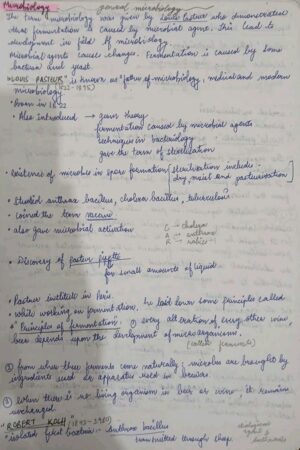 Microbiology general microbiology
The term "microbiology was given by Louis Pasteur who demonstrated
that fermentation is caused by microbial agents. This lead to
development in field of microbiology
Microbial agents cause changes. Fermentation is caused by some
bacteria and yeast.
"LOUIS PASTEUR" is known as "father of microbiology, medical and modern
microbiology" (1822-1895)
• born in 1822
• Also introduced → germ theory
fermentation caused by microbial agents
techniques in bacteriology
gave the term of sterilization
• Existence of microbe in spore formation sterilization includes -
dry, moist and pasteurisation
• Studied anthrax bacillus, cholera bacillus, tuberculosis
• Coined the term vaccine
• also gave microbial C → cholera
A → anthrax
R → rabies
• Discovery of pasteur pipette
for small amounts of liquid
• Pasteur institute in Paris
• while working on fermentation, he laid down some principles called
"Principles of fermentation. ① every alteration of either wine,
beer depends upon the development of microorganisms
(called ferments)
② these ferments come naturally; microbes are brought by
ingredients used or apparatus used in brewers
③ When there is no living organism in beer or wine it remains
unchanged.
"ROBERT KOCH"
"isolated first bacteria - Anthrax bacillus
transmitted through sheep